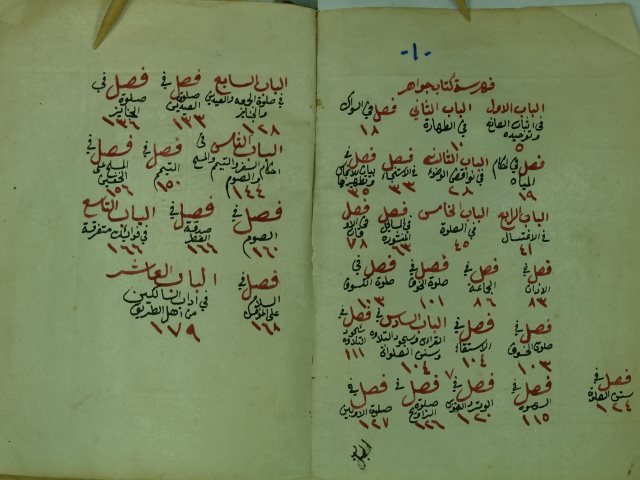 -١-
فهرسة كتاب جواهر
الباب الاول الباب الثاني فصل في السواك
في اثبات الصانع وتوحيده في الطهارة
٥ ١٠ ١٨
فصل في احكام المياه الباب الثالث فصل في فصل في
في نواقض الوضوء الاستنجاء بيان الانجاس وتطهيرها
١٩ ٢٨ ٣٣ ٣٥
الباب الرابع الباب الخامس فصل فصل
في الاغتسال في الصلوة في المسائل المنثورة
٤١ ٤٥ ٦٣ ٧٨
فصل في فصل في فصل في فصل في
الاذان الجماعة صلوة الخوف صلوة الكسوف
٨٣ ٨٦ ١٠١ ١٠٣
فصل في فصل في الباب السادس في فصل في
صلوة الخسوف الاستسقاء القران وسجود التلاوة وسنن الصلوة سجود التلاوة
١٠٣ ١٠٤ ١٠٤ ١١١
فصل في
سنن الصلوة
١٢٤
فصل في فصل في فصل في فصل في
السهو الوتر صلوة التراويح صلوة الاوابين
١١٥ ١٢٠ ١٢٦ ١٢٧
الباب
الباب السابع فصل في فصل في
في صلوة الجمعة والعيدين والجنائز العيدين صلوة الجنائز
١٢٨ ١٣٣ ١٣٦
الباب الثامن في فصل في فصل في
احكام السفر والتيمم والمسح والصوم التيمم المسح على الخفين
١٤٤ ١٥٠ ١٥٦
فصل في فصل في الباب التاسع
الصوم صدقة الفطر في فوائد متفرقة
١٦٠ ١٦٦ ١٦٦
فصل في الباب العاشر
السلام في اداب السالكين
من اهل الطريق
١٦٨ ١٧٩